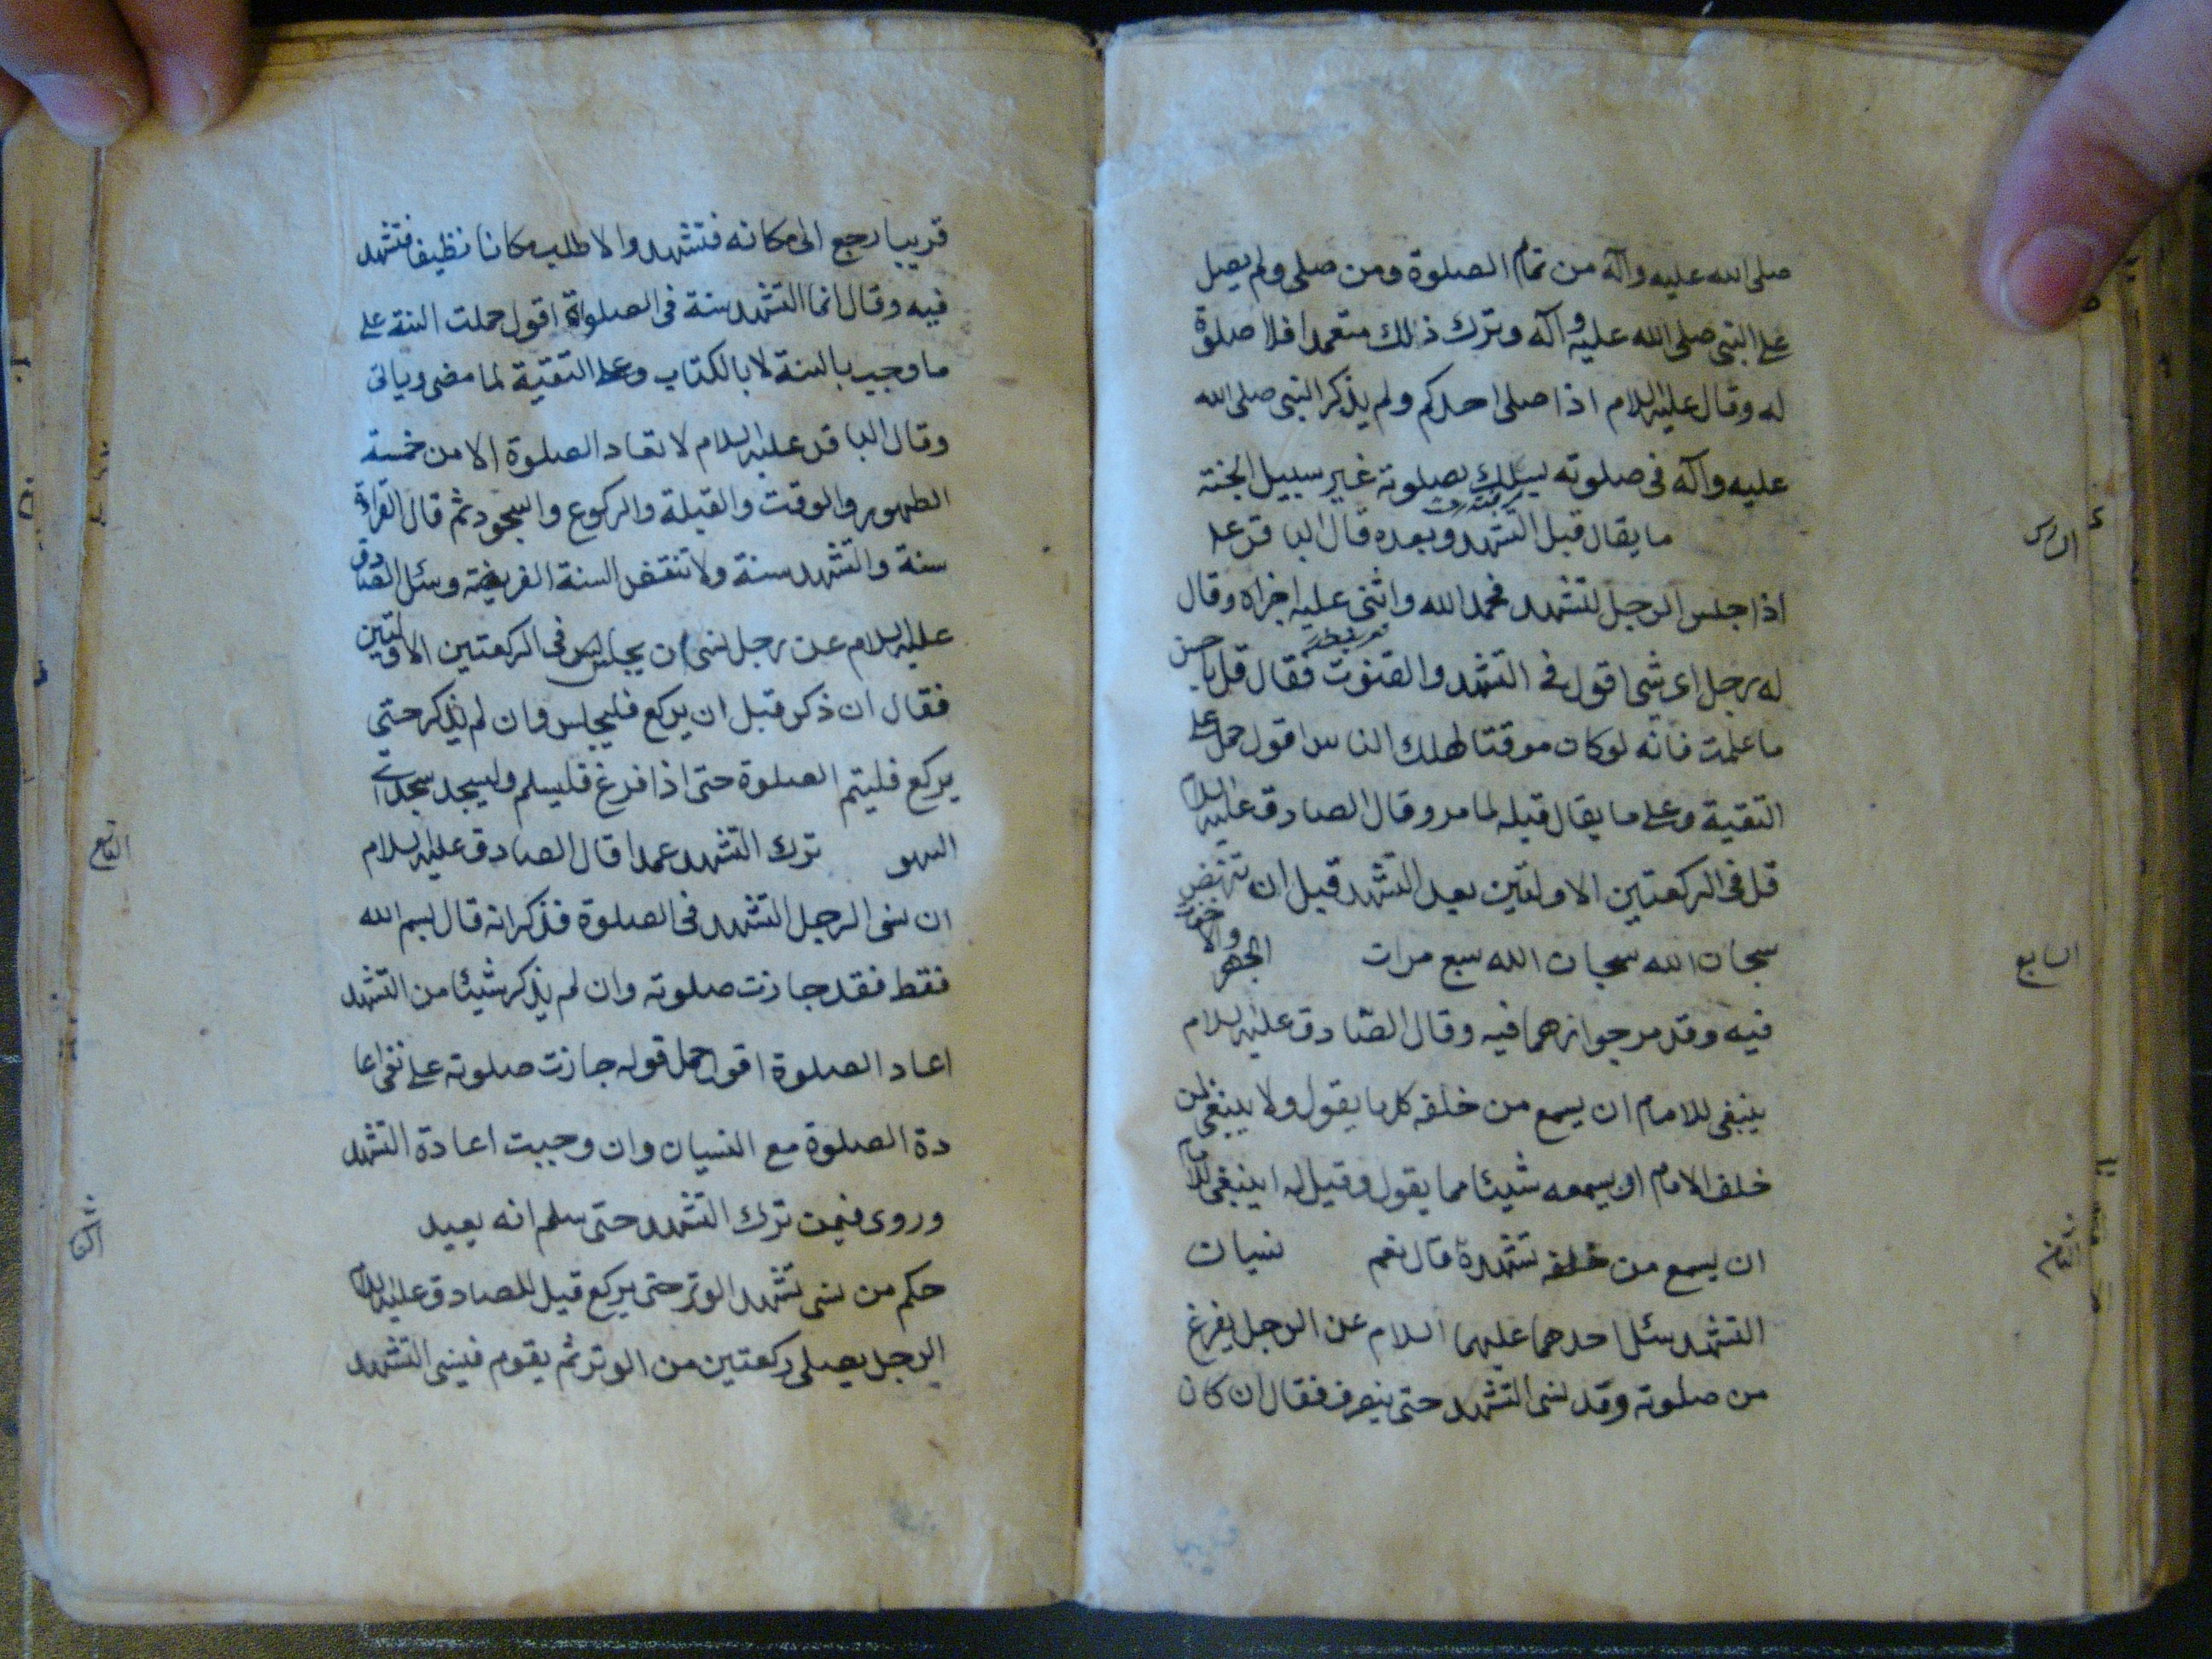 صلى الله عليه وآله من تمام الصلوة ومن صلى ولم يصل
على النبي صلى الله عليه وآله وترك ذلك متعمدا فلا صلوة
له وقال عليه السلام اذا صلى احدكم ولم يذكر النبي صلى الله
عليه وآله في صلوته يسلك بصلوته غير سبيل الجنة
السادس
ما يقال قبل التشهد وبعده قال الباقر ع
اذا جلس الرجل للتشهد فحمد الله واثنى عليه اجزاه وقال
له رجل اى شئ اقول في التشهد والقنوت فقال قل باحسن
ما علمت فانه لو كان موقتا لهلك الناس اقول حمل على
التقية وعلى ما يقال قبله لما مر وقال الصادق عليه السلام
قل في الركعتين الاولتين بعد التشهد قبل ان تنهض
السابع
سبحان الله سبحان الله سبع مرات الجهر والاخفات
فيه وقد مر جوازهما فيه وقال الصادق عليه السلام
ينبغي للامام ان يسمع من خلفه كل ما يقول ولا ينبغي لمن
خلف الامام ان يسمعه شيئا مما يقول وقيل له اينبغي للامام
الثامن
ان يسمع من خلفه تشهده قال نعم نسيان
التشهد سئل احدهما عليهما السلام عن الرجل يفرغ
من صلوته وقد نسى التشهد حتى ينصرف فقال ان كان
قريبا رجع الى مكانه فتشهد والا طلب مكانا نظيفا فتشهد
فيه وقال انما التشهد سنة في الصلوة اقول حملت السنة على
ما وجب بالسنة لا بالكتاب وعلى التقية لما مضى وياتى
وقال الباقر عليه السلام لا تعاد الصلوة الا من خمسة
الطهور والوقت والقبلة والركوع والسجود ثم قال القراءة
سنة والتشهد سنة ولا تنقض السنة الفريضة وسئل الصادق
عليه السلام عن رجل نسى ان يجلس في الركعتين الاولتين
فقال ان ذكر قبل ان يركع فليجلس وان لم يذكر حتى
يركع فليتم الصلوة حتى اذا فرغ فليسلم وليسجد سجدتى
التاسع
السهو ترك التشهد عمدا قال الصادق عليه السلام
ان نسى الرجل التشهد في الصلوة فذكر انه قال بسم الله
فقط فقد جازت صلوته وان لم يذكر شيئا من التشهد
اعاد الصلوة اقول حمل قوله جازت صلوته على نفى اعا
دة الصلوة مع النسيان وان وجبت اعادة التشهد
وروى فيمن ترك التشهد حتى سلم انه يعيد
حكم من نسى تشهد الوتر حتى يركع قيل للصادق عليه السلام
الرجل يصلى ركعتين من الوتر ثم يقوم فينسى التشهد